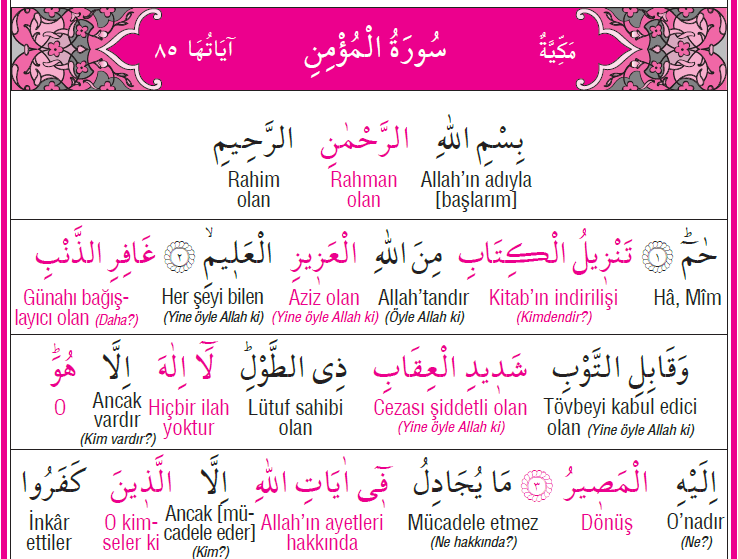 مَكِّيَّةٌ سُورَةُ الْمُؤْمِنِ اٰيَاتُهَا ٨٥
بِسْمِ اللّٰهِ الرَّحْمٰنِ الرَّحٖيمِ
Allah’ın adıyla Rahman Rahim
[başlarım] olan olan
حٰمٓ ١ تَنْزٖيلُ الْكِتَابِ مِنَ اللّٰهِ الْعَزٖيزِ الْعَلٖيمِۙ ٢ غَافِرِ الذَّنْبِ
Hâ, Mîm Kitab’ın indirilişi Allah’tandır Aziz olan Her şeyi bilen Günahı bağış-
(Kimdendir?) (Öyle Allah ki) (Yine öyle Allah ki) (Yine öyle Allah ki) layıcı olan (Daha?)
وَقَابِلِ التَّوْبِ شَدٖيدِ الْعِقَابِ ذِى الطَّوْلِؕ لَٓا اِلٰهَ اِلَّا هُوَؕ
Tövbeyi kabul edici Cezası şiddetli olan Lütuf sahibi Hiçbir ilah Ancak O
olan (Yine öyle Allah ki) (Yine öyle Allah ki) olan yoktur vardır
(Kim vardır?)
اِلَيْهِ الْمَصٖيرُ ٣ مَا يُجَادِلُ فٖٓى اٰيَاتِ اللّٰهِ اِلَّا الَّذٖينَ كَفَرُوا
O’nadır Dönüş Mücadele etmez Allah’ın ayetleri Ancak [mü- O kim- İnkâr
(Ne?) (Ne hakkında?) hakkında cadele eder] seler ki ettiler
(Kim?)